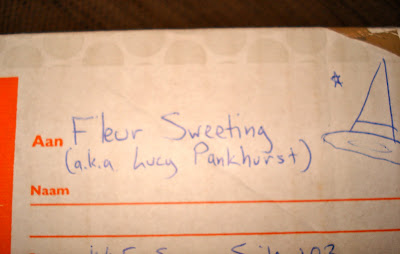 Aan Fleur Sweeting
(a.k.a Lucy Pankhurst)
Naam